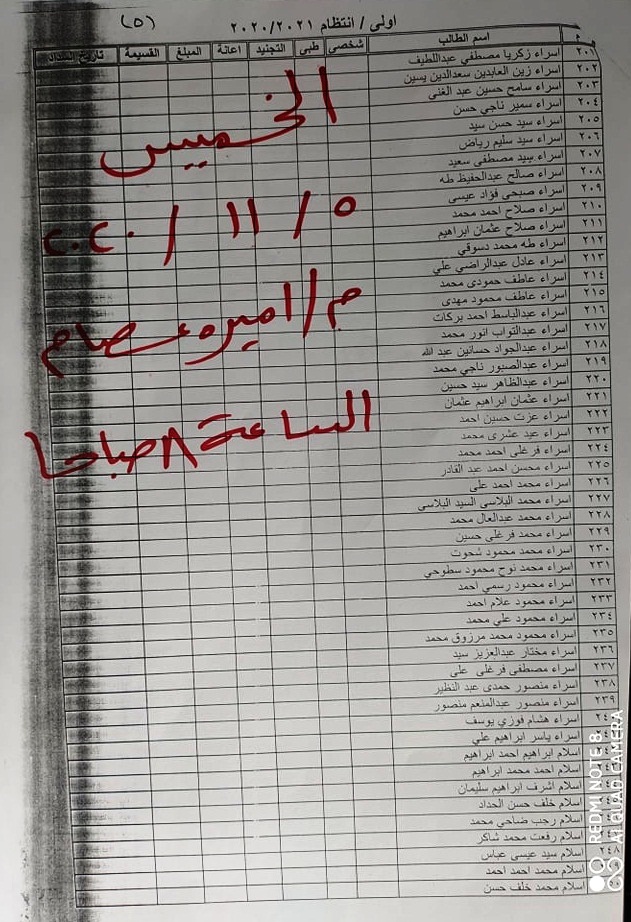 (٥)
اولى / انتظام ٢٠٢٠/٢٠٢١
م اسم الطالب شخصي طبى التجنيد اعانة المبلغ القسيمة تاريخ السداد
٢٠١ اسراء زكريا مصطفي عبداللطيف
٢٠٢ اسراء زين العابدين سعدالدين يسين
٢٠٣ اسراء سامح حسين عبد الغنى
٢٠٤ اسراء سمير ناجي حسن
٢٠٥ اسراء سيد حسن سيد
٢٠٦ اسراء سيد سليم رياض
٢٠٧ اسراء سيد مصطفى سعيد
٢٠٨ اسراء صالح عبدالحفيظ طه
٢٠٩ اسراء صبحى فؤاد عيسى
٢١٠ اسراء صلاح احمد محمد
٢١١ اسراء صلاح عثمان ابراهيم
٢١٢ اسراء طه محمد دسوقي
٢١٣ اسراء عادل عبدالراضي علي
٢١٤ اسراء عاطف حمودى محمد
٢١٥ اسراء عاطف محمود مهدى
٢١٦ اسراء عبدالباسط احمد بركات
٢١٧ اسراء عبدالتواب انور محمد
٢١٨ اسراء عبدالجواد حسانين عبد الله
٢١٩ اسراء عبدالصبور ناجي محمد
٢٢٠ اسراء عبدالظاهر سيد حسين
٢٢١ اسراء عثمان ابراهيم عثمان
٢٢٢ اسراء عزت حسين احمد
٢٢٣ اسراء عيد عشرى محمد
٢٢٤ اسراء فرغلى احمد محمد
٢٢٥ اسراء محسن احمد عبد القادر
٢٢٦ اسراء محمد احمد على
٢٢٧ اسراء محمد البلاسي السيد البلاسي
٢٢٨ اسراء محمد عبدالعال محمد
٢٢٩ اسراء محمد فرغلى حسين
٢٣٠ اسراء محمد محمود شحوت
٢٣١ اسراء محمد نوح محمود سطوحي
٢٣٢ اسراء محمود رسمي احمد
٢٣٣ اسراء محمود علام احمد
٢٣٤ اسراء محمود علي محمد
٢٣٥ اسراء محمود محمد مرزوق محمد
٢٣٦ اسراء مختار عبدالعزيز سيد
٢٣٧ اسراء مصطفى فرغلى على
٢٣٨ اسراء منصور حمدى عبد النظير
٢٣٩ اسراء منصور عبدالمنعم منصور
اسراء هشام فوزي يوسف
اسراء ياسر ابراهيم علي
اسلام ابراهيم احمد ابراهيم
اسلام احمد محمد ابراهيم
اسلام اشرف ابراهيم سليمان
اسلام خلف حسن الحداد
اسلام رجب ضاحي محمد
اسلام رفعت محمد شاكر
٢٤٨ اسلام سيد عيسى عباس
اسلام محمد احمد احمد
اسلام محمد خلف حسن
الخميس
٥ / ١١ / ٢٠٢٠
م/ اميره عصام
الساعة ٨ صباحا
REDMI NOTE 8
AI QUAD CAMERA